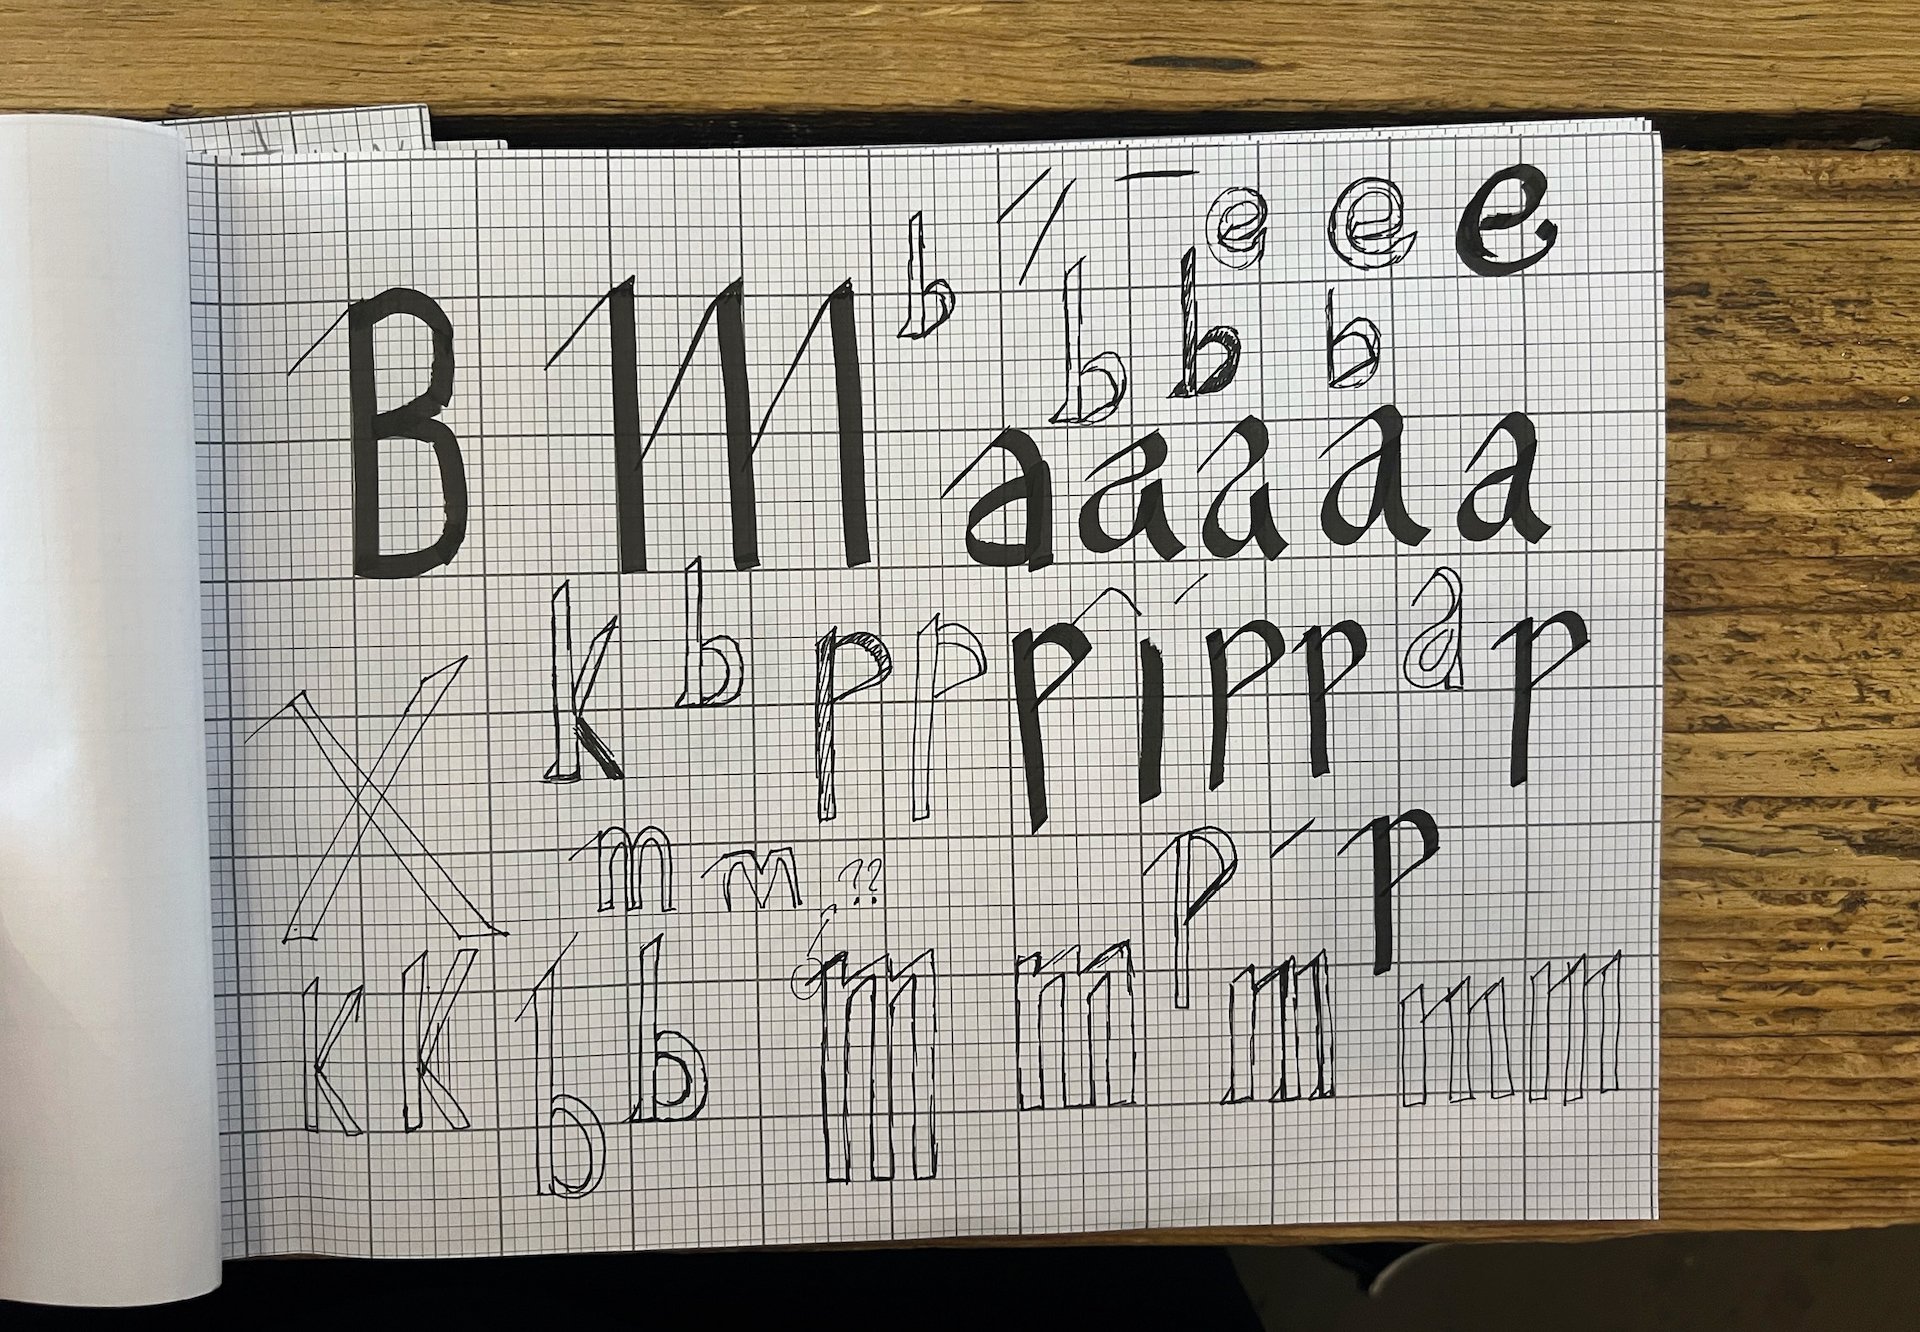 e e e
B M b b b b
a a a a a
k b p p p i p p a p
X m m ?? p p
k k b b m m m m m